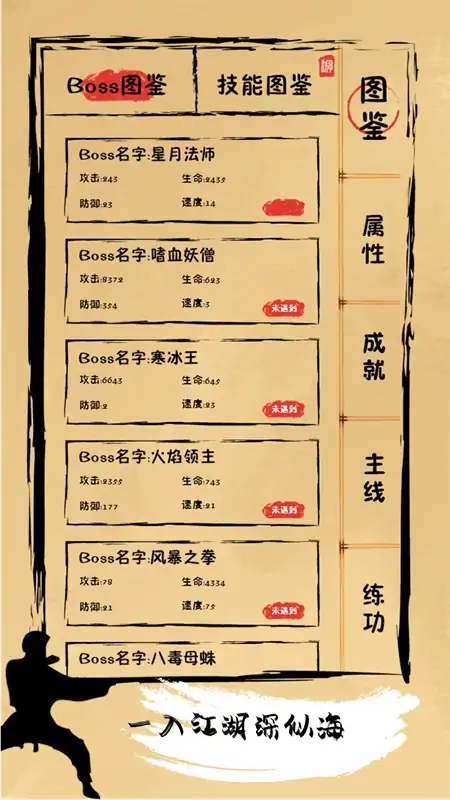 Boss图鉴
技能图鉴
图鉴
属性
成就
主线
练功
Boss名字:星月法师
攻击:243
生命:2435
防御:23
速度:14
Boss名字:嗜血妖僧
攻击:8372
生命:623
防御:354
速度:3
未遇到
Boss名字:寒冰王
攻击:6643
生命:645
防御:2
速度:23
未遇到
Boss名字:火焰领主
攻击:2355
生命:743
防御:177
速度:21
未遇到
Boss名字:风暴之拳
攻击:78
生命:4334
防御:21
速度:75
未遇到
Boss名字:八毒母蛛
一入江湖深似海